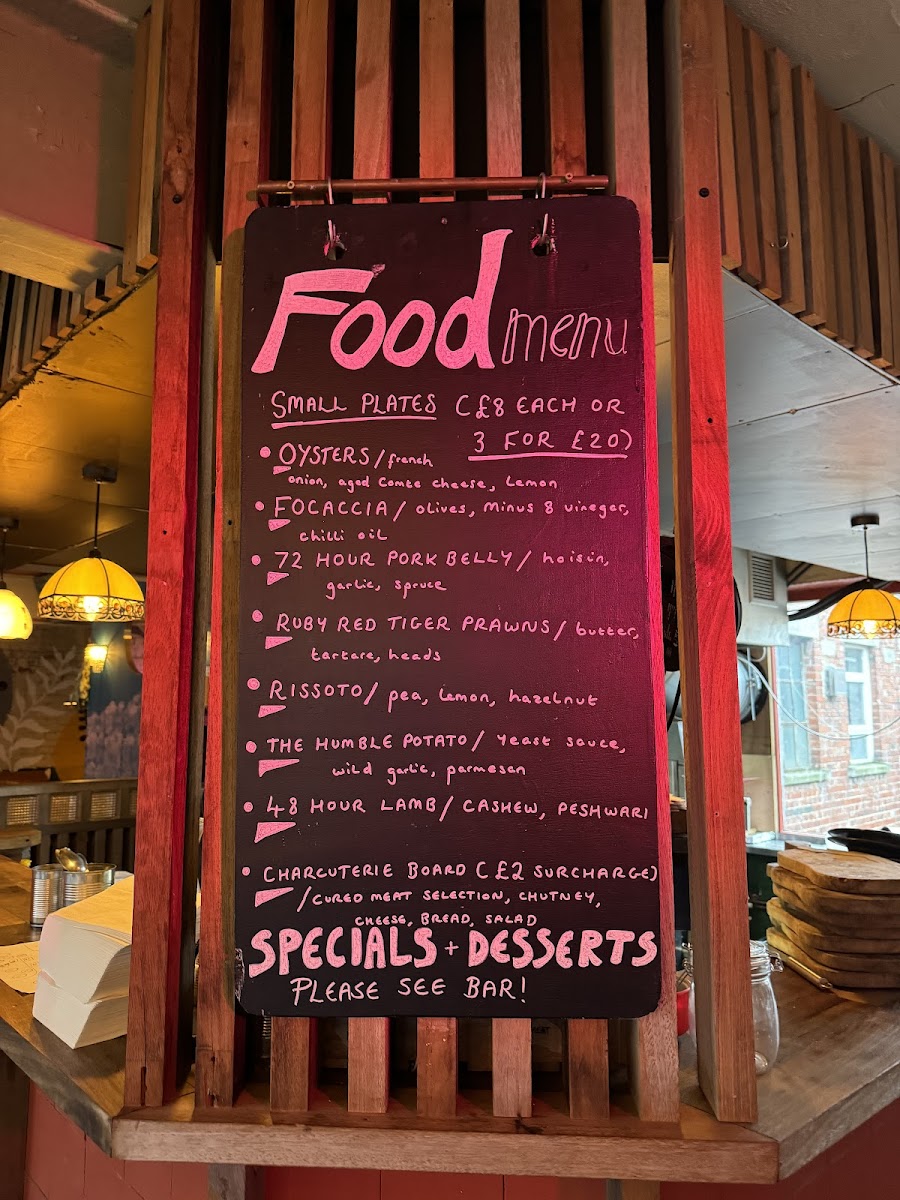 Food menu
SMALL PLATES (£8 EACH OR
3 FOR £20)
• OYSTERS / french
onion, aged Comte cheese, Lemon
• FOCACCIA / olives, Minus 8 vineger,
chilli oil
• 72 HOUR PORK BELLY / hoisin,
garlic, spruce
• RUBY RED TIGER PRAWNS / butter,
tartare, heads
• RISSOTO / pea, lemon, hazelnut
• THE HUMBLE POTATO / yeast sauce,
wild garlic, parmesan
• 48 HOUR LAMB / CASHEW, PESHWARI
• CHARCUTERIE BOARD (£2 SURCHARGE)
/ CURED MEAT SELECTION, CHUTNEY,
CHEESE, BREAD, SALAD
SPECIALS + DESSERTS
PLEASE SEE BAR!